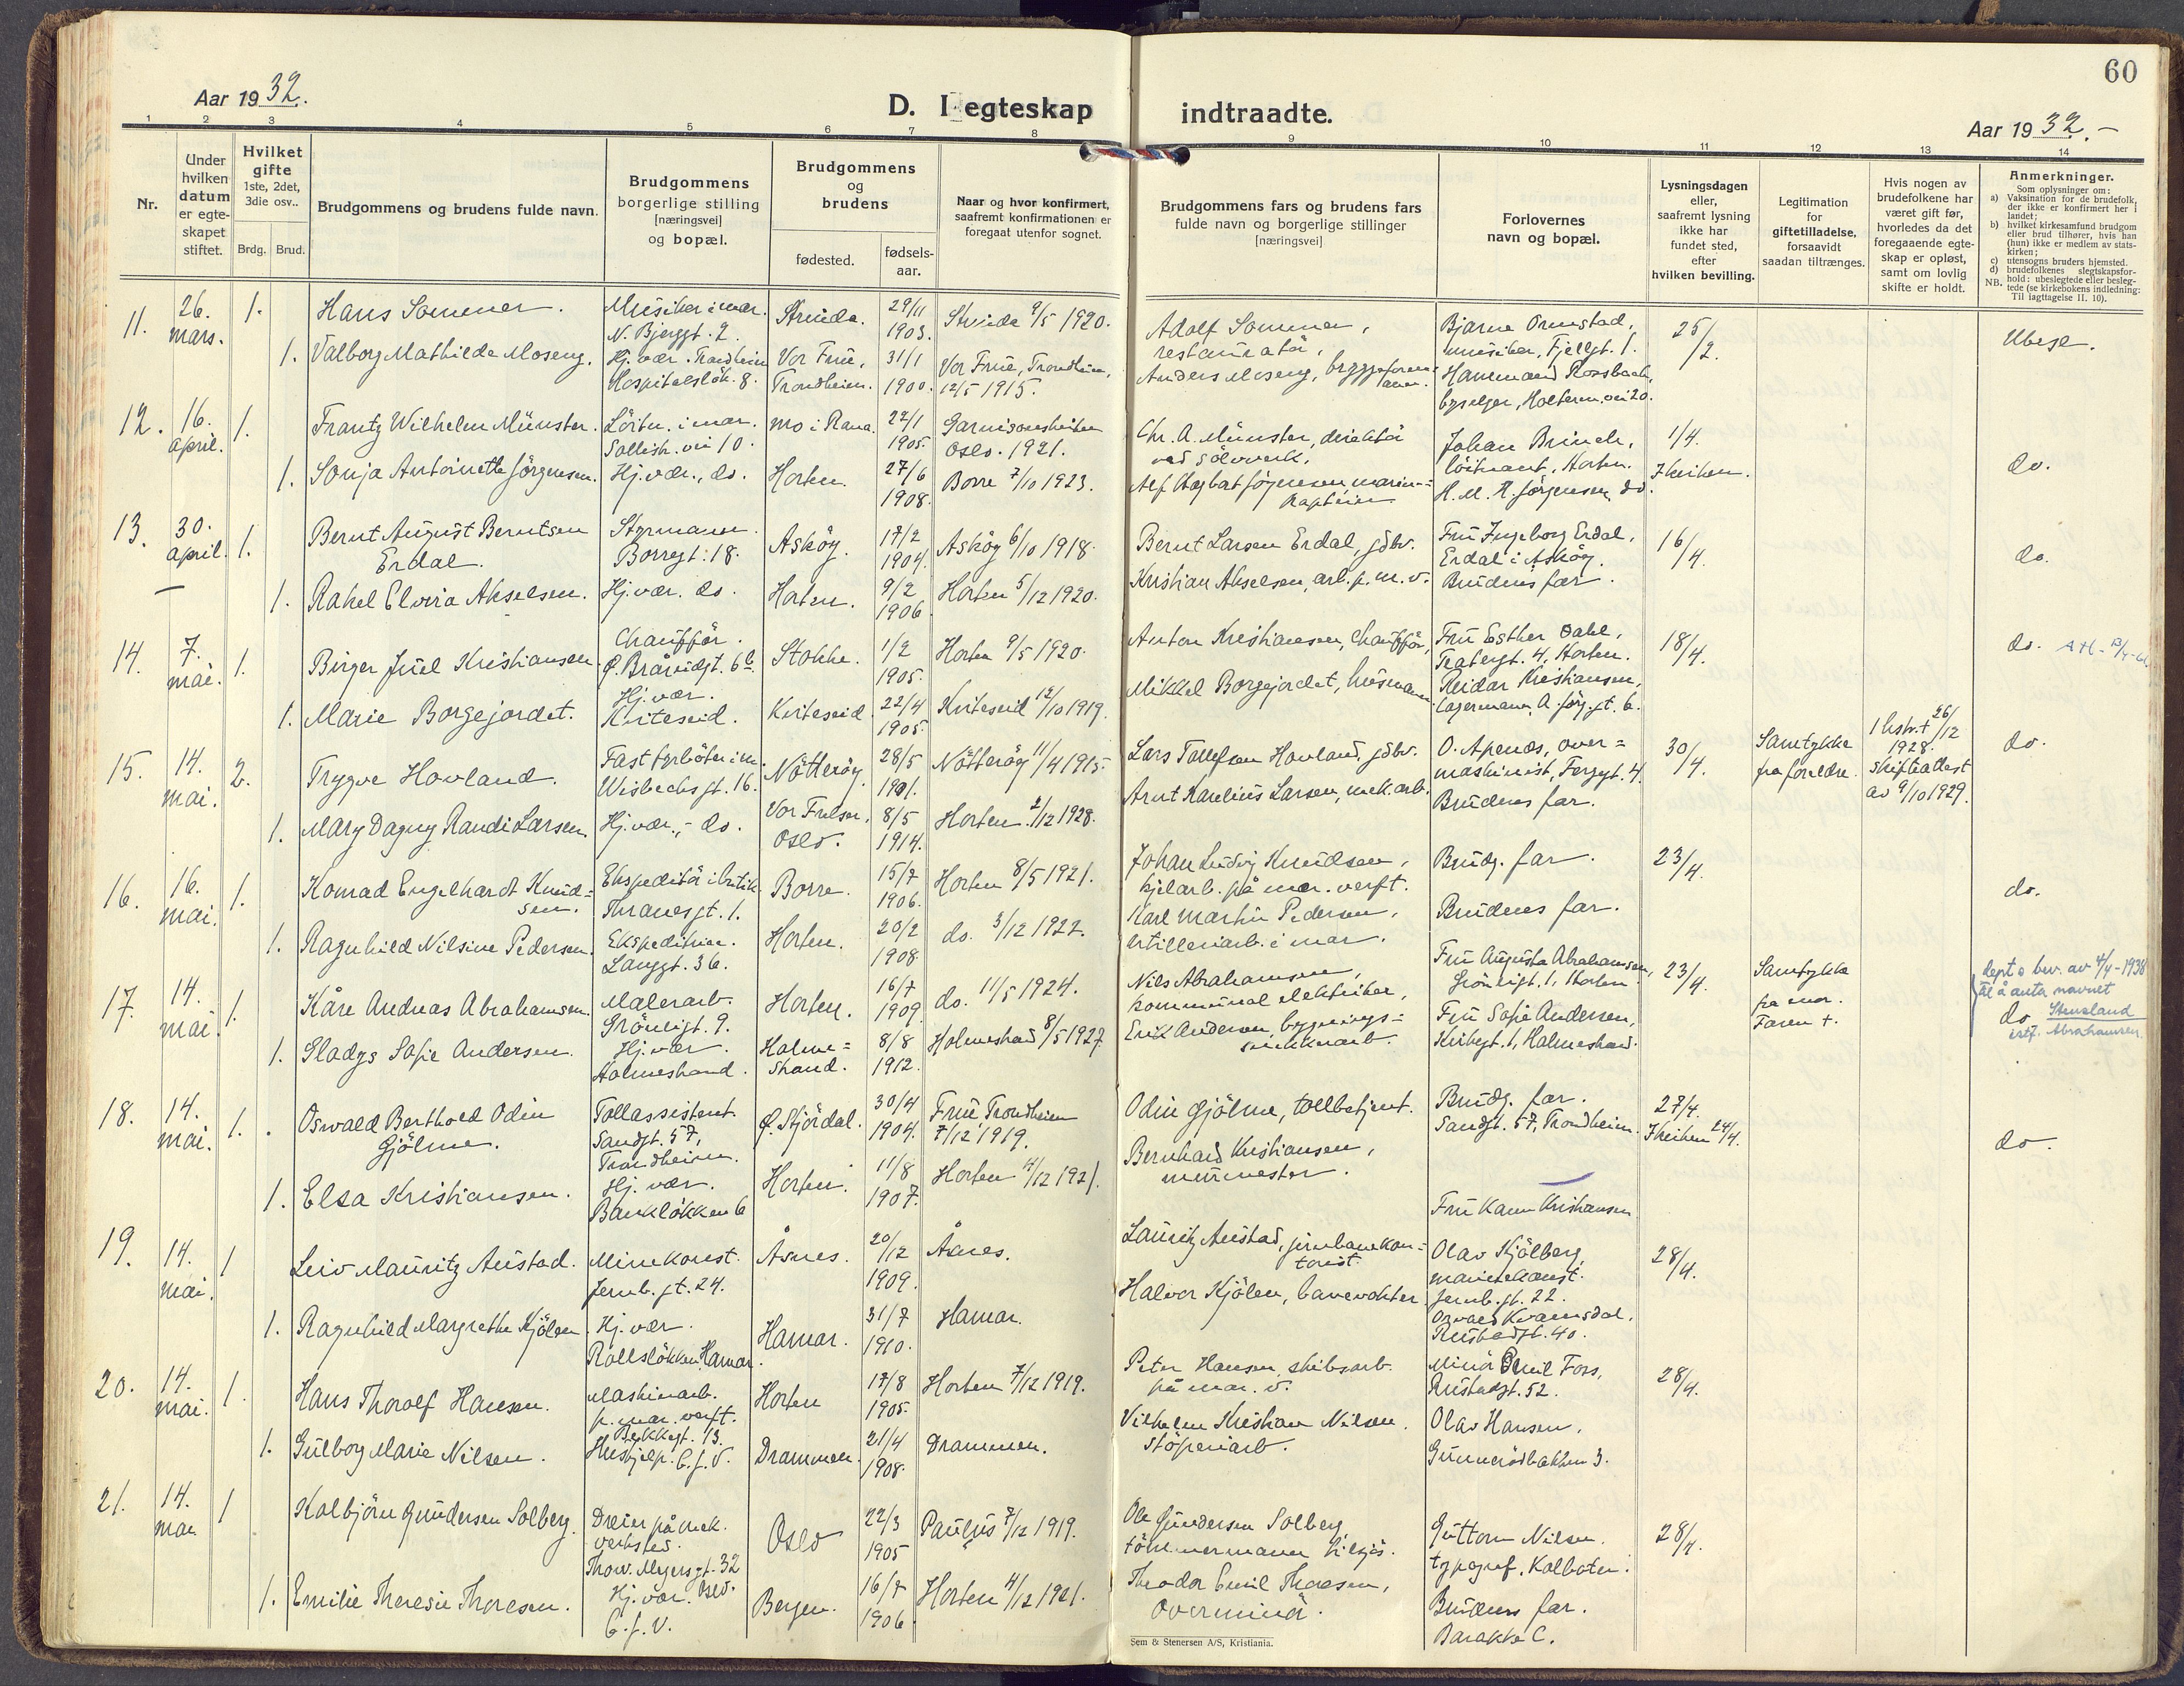 60
Aar 19 32.
D. I egteskap indtraadte.
Aar 19 32.-
1 2 3 4 5 6 7 8 9 10 11 12 13 14
Nr.
Under hvilken datum er egteskapet stiftet.
Hvilket gifte 1ste, 2det, 3die osv..
Brdg. Brud.
Brudgommens og brudens fulde navn.
Brudgommens borgerlige stilling [næringsvei] og bopæl.
Brudgommens og brudens
fødested.
fødsels-aar.
Naar og hvor konfirmert, saafremt konfirmationen er foregaat utenfor sognet.
Brudgommens fars og brudens fars fulde navn og borgerlige stillinger [næringsvei]
Forlovernes navn og bopæl.
Lysningsdagen eller, saafremt lysning ikke har fundet sted, efter hvilken bevilling.
Legitimation for giftetilladelse, forsaavidt saadan tiltrænges.
Hvis nogen av brudefolkene har været gift før, hvorledes da det foregaaende egteskap er opløst, samt om lovlig skifte er holdt.
Anmerkninger.
Som oplysninger om:
a) Vaksination for de brudefolk, der ikke er konfirmert her i landet;
b) hvilket kirkesamfund brudgom eller brud tilhører, hvis han (hun) ikke er medlem av statskirken;
c) utensogns bruders hjemsted.
d) brudefolkenes slegtskapsforhold: ubeslegtede eller beslegtede (se kirkebokens indledning:
NB. Til iagttagelse II. 10).
11. 26. mars. 1. Hans Sommer. Musiker i mar. N. Bjerggt. 2. Strinda. 29/11 1903. Strinda 9/5 1920. Adolf Sommer, restauratör, Bjarne Ormstad, musiker, Fjellgt. 1. 25/2. Ubesl.
1. Valborg Mathilde Moseng. Hj. vær. Trondheim Hospitalsløk. 8. Vor Frue, Trondheim. 31/1 1900. Vor Frue, Trondheim, 12/5 1915. Anders Moseng, bryggeformann. Rossbach,
12. 16. april. 1. Frantz Wilhelm Münster. Löitn. i mar. Sollistr.vei 10. Mo i Rana. 22/1 1905. Garnisonskirken Oslo. 1921. Chr. A. Münster, direktör ved sölvverk. Johan Brinch, löitnant, Horten. 1/4. I kirken. do.
1. Sonja Antoinette Jörgensen. Hj. vær., do. Horten. 27/6 1908. Borre 7/10 1923. Alf Dagbat Jörgensen, marinekaptein H. M. R. Jörgensen, do.
13. 30. april. 1. Bernt August Berntsen Erdal. Styrmann. Borregt. 18. Asköy. 17/2 1904. Asköy 6/10 1918. Bernt Larsen Erdal, gdbr. Fru Ingeborg Erdal, Erdal i Asköy. 16/4. do.
1. Rakel Elvira Akselsen. Hj. vær. do. Horten. 9/2 1906. Horten 5/12 1920. Kristian Akselsen, arb. p. m. v. Brudens far.
14. 7. mai. 1. Birger Juel Kristiansen. Chaufför. Ø. Braarudgt. 6b. Stokke. 1/2 1905. Horten 9/5 1920. Anton Kristiansen, chaufför, Fru Esther Dahl, Teatergt. 4, Horten. 18/4. do.
1. Marie Borgejordet. Hj. vær. Kviteseid. Kviteseid. 22/4 1905. Kviteseid 12/10 1919. Mikkel Borgejordet, husmann Reidar Kristiansen, lagermann, A. Jörg.gt. 6.
15. 14. mai. 2. Trygve Hovland. Fast fyrböter i m. Wisbechsgt. 16. Nötteröy. 28/5 1901. Nötteröy 11/4 1915. Lars Tollefsen Hovland, gdbr. O. Apenæs, overmaskinist, Fergegt. 4. 30/4. Samtykke fra foreldre. 1 hstr. † 26/12 1928. Skifteattest av 9/10 1929. do.
1. Mary Dagny Randi Larsen. Hj. vær., - do. Vor Frelser, Oslo. 8/5 1914. Horten 2/12 1928. Arnt Karelius Larsen, mek. arb. Brudens far.
16. 16. mai. 1. Konrad Engelhardt Knudsen. Ekspeditör i butik. Thranesgt. 1. Borre. 15/7 1906. Horten 8/5 1921. Johan Ludvig Knudsen, kjelarb. på mar. verft. Brudg. far. 23/4. do.
1. Ragnhild Nilsine Pedersen. Ekspeditrise. Langgt. 36. Horten. 20/2 1908. do. 3/12 1922. Karl Martin Pedersen, artilleriarb. i mar. Brudens far.
17. 14. mai. 1. Kåre Andreas Abrahamsen. Malerarb. Grönligt. 9. Horten. 16/7 1909. do. 11/5 1924. Nils Abrahamsen, kommunal elektriker, Fru Augusta Abrahamsen, Grönligt. 1, Horten. 23/4. Samtykke fra mor. Faren †. dept.s bev. av 4/4-1938 til å anta navnet Stensland istf. Abrahamsen. do
1. Gladys Sofie Andersen. Hj. vær. Holmestrand. Holmestrand. 8/8 1912. Holmestrand 8/5 1927. Erik Andersen, bygningssnekkerarb. Fru Sofie Andersen, Kirkegt. 1, Holmestrand.
18. 14. mai. 1. Oswald Berthold Odin Gjölme. Tollassistent. Sandgt. 57, Trondheim. Ø. Stjördal. 30/4 1904. Frue, Trondheim 7/12 1919. Odin Gjölme, tollbetjent. Brudg. far. Sandgt. 57, Trondheim. 27/4. I kirken 24/4. do.
1. Elsa Kristiansen. Hj. vær. Bankløkken 6 Horten. 11/8 1907. Horten 4/12 1921. Bernhard Kristiansen, murmester. Fru Karen Kristiansen
19. 14. mai. 1 Leiv Mauritz Austad. Minekonst. Jernb.gt. 24. Åsnes. 20/12 1909. Åsnes. Lauritz Austad, jernbanekontorist. Olav Kjölberg, marinekonst. Jernb.gt. 22. 28/4.
1. Ragnhild Margrethe Kjölen. Hj. vær. Rollsløkken, Hamar. Hamar. 31/7 1910. Hamar. Halvor Kjölen, banevokter. Osvald Kvamsdal. Rustadgt. 40.
20. 14. mai. 1. Hans Thoralf Hansen. Maskinarb. p. mar. verft. Bekkegt. 13. Horten 17/8 1905. Horten 7/12 1919. Peter Hansen, skibsarb. på mar. v. Minör Emil Foss, Rustadgt. 52. 28/4.
1. Gulborg Marie Nilsen. Hushjelp. C.J.V. Drammen. 21/4 1908. Drammen. Vilhelm Kristian Nilsen. Stöperiarb. Olav Hansen, Gunnerödbakken 3.
21. 14. mai 1 Kolbjörn Gundersen Solberg. Dreier på mek. verksted. Thorv. Meyersgt. 32 Oslo. Oslo 22/3 1905 Paulus 7/12 1919. Ole Gundersen Solberg, tömmermann Guttorm Nilsen. typograf, Kolboten. 28/4.
1. Emilie Theresie Thoresen. Hj. vær. C.J.V. Bergen. 16/7 1906 Horten 4/12 1921. Theodor Emil Thoresen, Overminör. Brudens far. Barakke C.
Sem & Stenersen A/S, Kristiania.